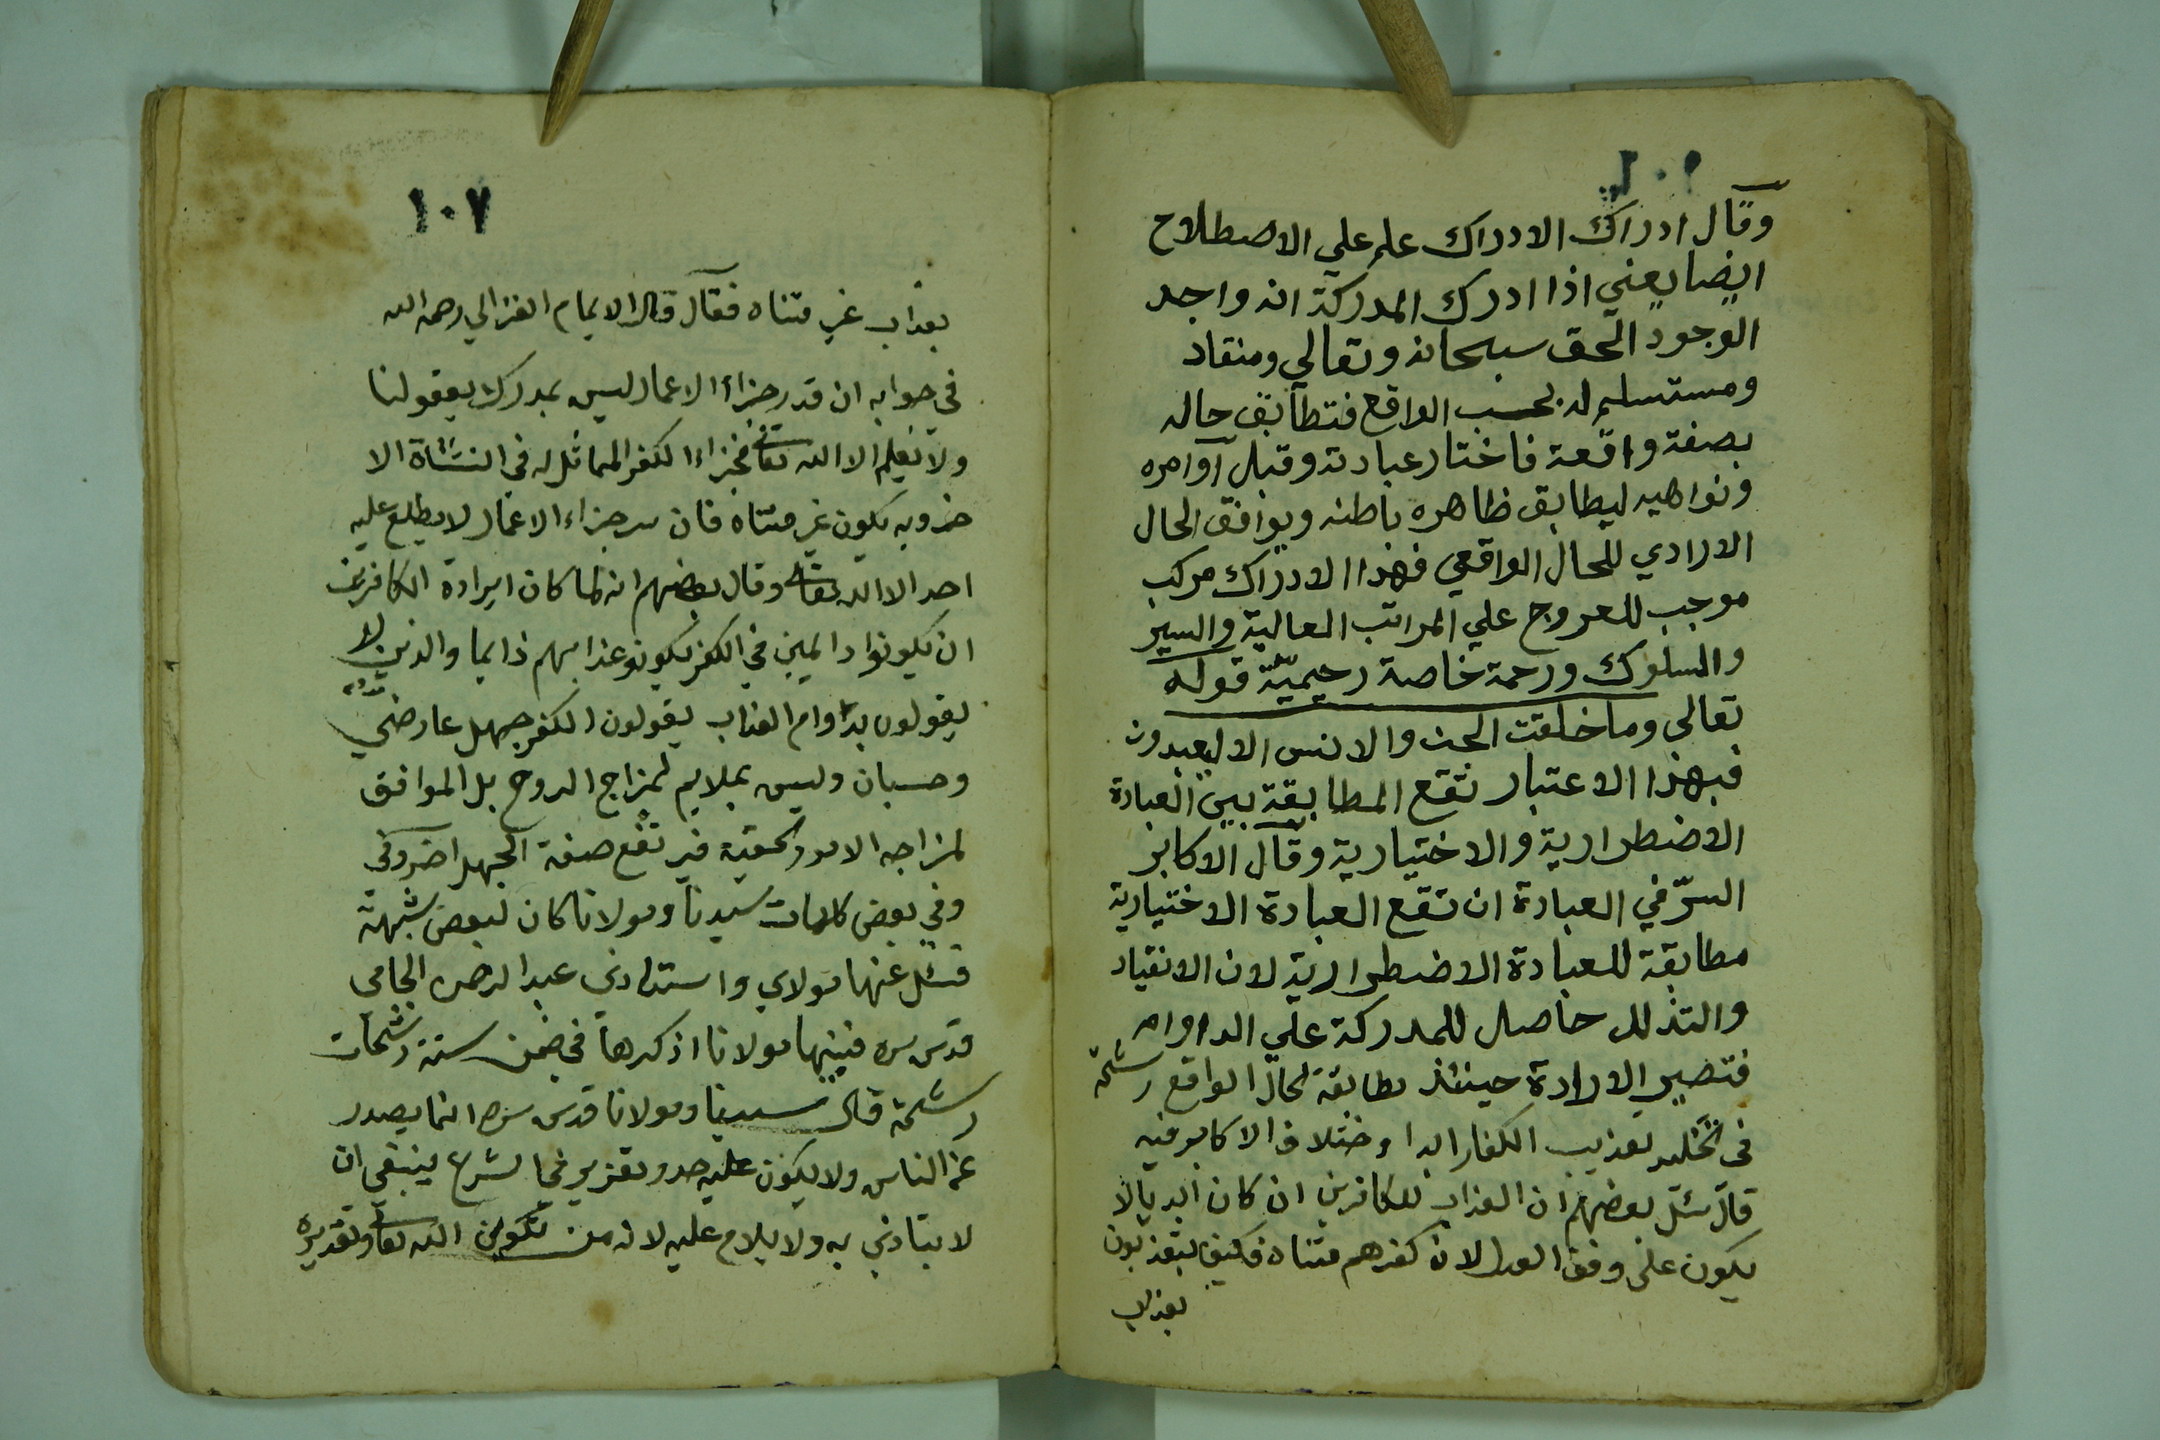 ١٠٦
وقال ادراك الادراك علم علي الاصطلاح
ايضا يعني اذا ادرك المدركة انه واجد
الوجود الحق سبحانه وتعالي ومنقاد
ومستسلم له بحسب الواقع فتطابق حاله
بصفة واقعة فاختار عبادته وقبل اوامره
ونواهيه ليطابق ظاهره باطنه ويوافق الحال
الارادي للحال الواقعي فهذا الادراك مركب
موجب للعروج علي المراتب العالية والسير
والسلوك ورحمة خاصة رحيمية قوله
تعالي وما خلقت الجن والانس الا ليعبدون
فبهذا الاعتبار تقع المطابقة بين العبادة
الاضطرارية والاختيارية وقال الاكابر
السرّ في العبادة ان تقع العبادة الاختيارية
مطابقة للعبادة الاضطرارية لان الانقياد
والتذلل حاصل للمدركة علي الداوام
فتصير الارادة حينئذ مطابقة لحال الواقع رشحة
في تخليد تعذيب الكفار ابدا واختلاف الاكابر فيه
قال سئل بعضهم ان العذاب للكافرين ان كان ابديا لا
يكون علي وفق العدل لان كفرهم متناه فكيف يتعذبون
بعذاب
١٠٧
بعذاب غير متناه فقال قال الايمام الغزالي رحمه الله
في جوابه ان قدر جزاء الاعمال ليس بمدرك بعقولنا
ولا يعلم الا الله تعا فجزاء الكفر المماثل له في النشاة الا
خروية يكون غير متناه فان سر جزاء الاعمال لا يطلع عليه
احد الا الله تعا وقال بعضهم انه لما كان ايرادة الكافرين
ان يكونوا دايمين في الكفر يكونو عذابهم دايما والذين لا
يقولون بداوام العذاب يقولون الكفر جهل عارضي
وحسبان وليس بملايم لمزاج الروح بل الموافق
لمزاجه الامور الحقية فير تفع صفة الجهل اخروكي
وفي بعض كلمات سيدنا ومولانا كان لبعض شبهة
فسئل عنها مولاي واستادي عبد الرحمن الجامي
قدس سره فبينها مولانا اذكرها في ضمن ستة رشحات
رشحة قال سيدنا ومولانا قدس سره انما يصدر
عن الناس ولا يكون عليه حد وتعزير في الشرع ينبغي ان
لا يتاذي به ولا يلام عليه لانه من تكوين الله تعا وتقديره